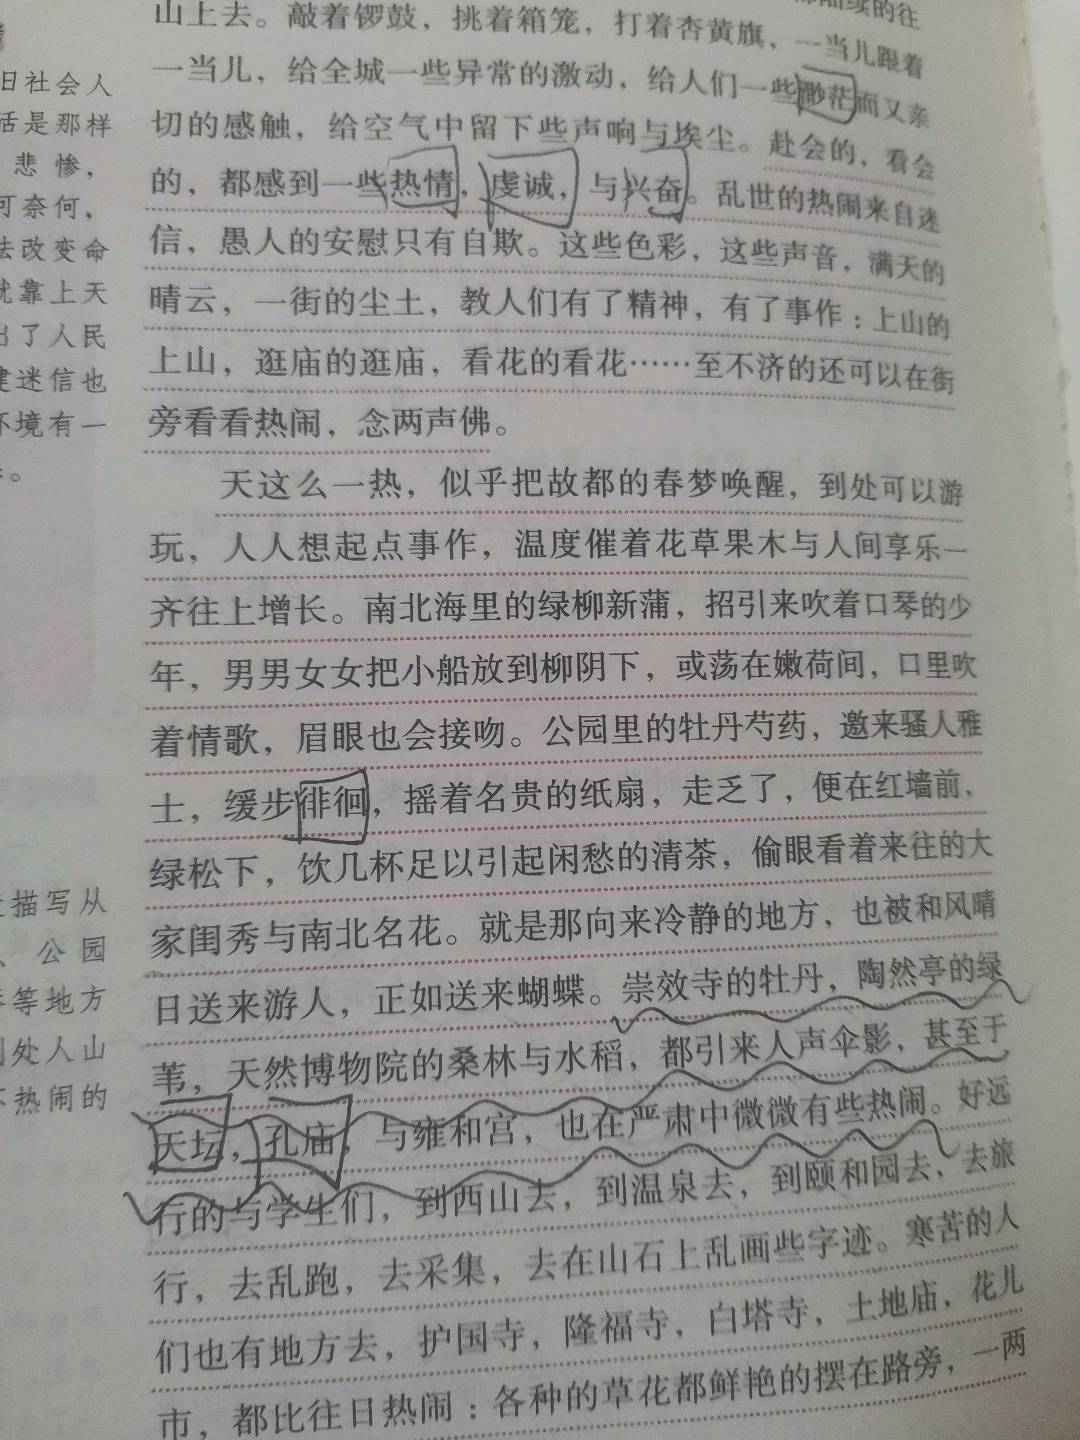 陆续的往
山上去。敲着锣鼓，挑着箱笼，打着杏黄旗，一当儿跟着
一当儿，给全城一些异常的激动，给人们一些渺茫而又亲
切的感触，给空气中留下些声响与埃尘。赴会的，看会
的，都感到一些热情，虔诚，与兴奋。乱世的热闹来自迷
信，愚人的安慰只有自欺。这些色彩，这些声音，满天的
晴云，一街的尘土，教人们有了精神，有了事作：上山的
上山，逛庙的逛庙，看花的看花……至不济的还可以在街
旁看看热闹，念两声佛。
天这么一热，似乎把故都的春梦唤醒，到处可以游
玩，人人想起点事作，温度催着花草果木与人间享乐一
齐往上增长。南北海里的绿柳新蒲，招引来吹着口琴的少
年，男男女女把小船放到柳阴下，或荡在嫩荷间，口里吹
着情歌，眉眼也会接吻。公园里的牡丹芍药，邀来骚人雅
士，缓步徘徊，摇着名贵的纸扇，走乏了，便在红墙前，
绿松下，饮几杯足以引起闲愁的清茶，偷眼看着来往的大
家闺秀与南北名花。就是那向来冷静的地方，也被和风晴
日送来游人，正如送来蝴蝶。崇效寺的牡丹，陶然亭的绿
苇，天然博物院的桑林与水稻，都引来人声伞影，甚至于
天坛，孔庙，与雍和宫，也在严肃中微微有些热闹。好远
行的与学生们，到西山去，到温泉去，到颐和园去，去旅
行，去乱跑，去采集，去在山石上乱画些字迹。寒苦的人
们也有地方去，护国寺，隆福寺，白塔寺，土地庙，花儿
市，都比往日热闹：各种的草花都鲜艳的摆在路旁，一两
旧社会人
活是那样
悲惨，
可奈何，
法改变命
就靠上天
出了人民
建迷信也
环境有一
。
描写从
、公园
等地方
到处人山
热闹的